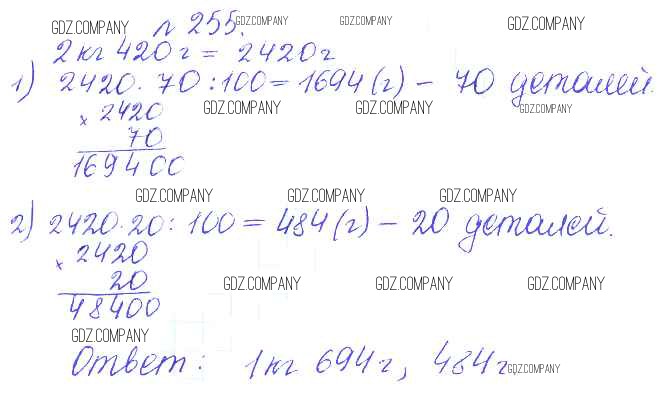 GDZ.COMPANY № 255. GDZ.COMPANY GDZ.COMPANY GDZ.COMPANY
2 кг 420 г = 2420 г
1) 2420 · 70 : 100 = 1694 (г) – 70 деталей.
× 2420 GDZ.COMPANY GDZ.COMPANY GDZ.COMPANY
70
169400
GDZ.COMPANY GDZ.COMPANY GDZ.COMPANY
2) 2420 · 20 : 100 = 484 (г) – 20 деталей.
× 2420
20 GDZ.COMPANY GDZ.COMPANY GDZ.COMPANY
48400
GDZ.COMPANY
Ответ: 1 кг 694 г, 484 г GDZ.COMPANY